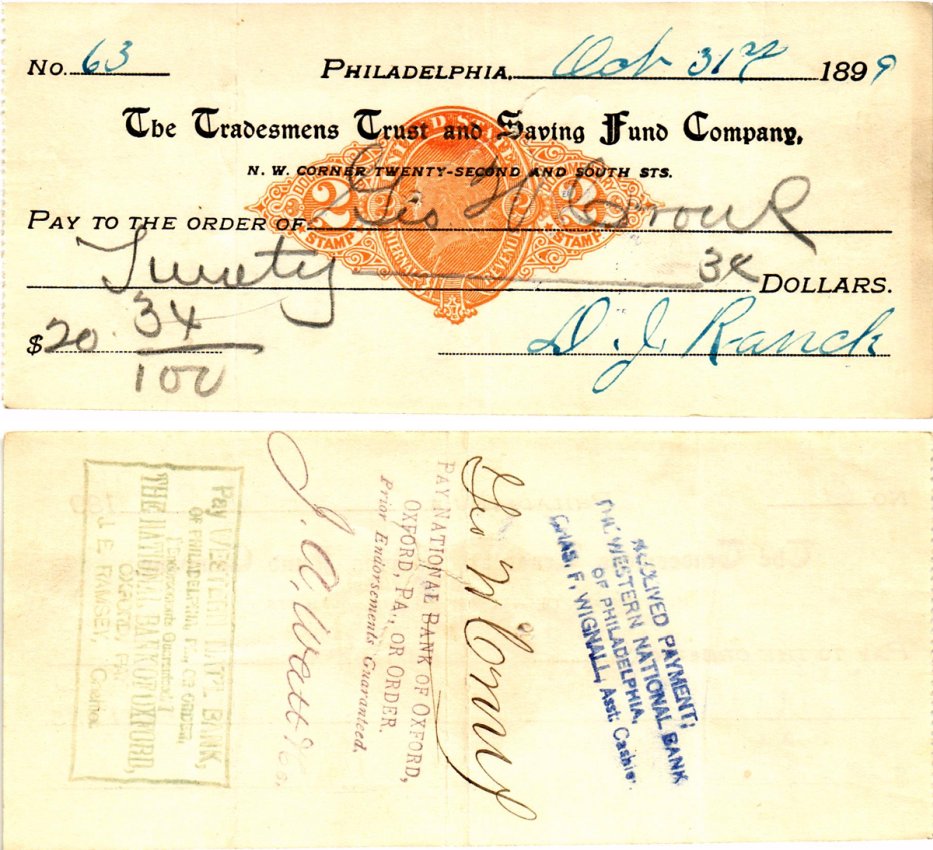 No. 63 PHILADELPHIA, Oct 31st 1899
The Tradesmens Trust and Saving Fund Company,
N. W. CORNER TWENTY-SECOND AND SOUTH STS.
UNITED STATES
2 2
STAMP STAMP
INTERNAL REVENUE
PAY TO THE ORDER OF Geo
Twenty 34 DOLLARS.
$20. 34/100
D. J. Ranck
RECEIVED PAYMENT,
THE WESTERN NATIONAL BANK
OF PHILADELPHIA,
CHAS. F. WIGNALL, Asst. Cashier.
Geo
PAY NATIONAL BANK OF OXFORD,
OXFORD, PA., OR ORDER.
Prior Endorsements Guaranteed.
J. A. Watt
Pay WESTERN NAT'L BANK,
OF PHILADELPHIA, Pa., OR ORDER,
Endorsements Guaranteed
THE NATIONAL BANK OF OXFORD,
OXFORD, PA.
J. E. RAMSEY, Cashier.